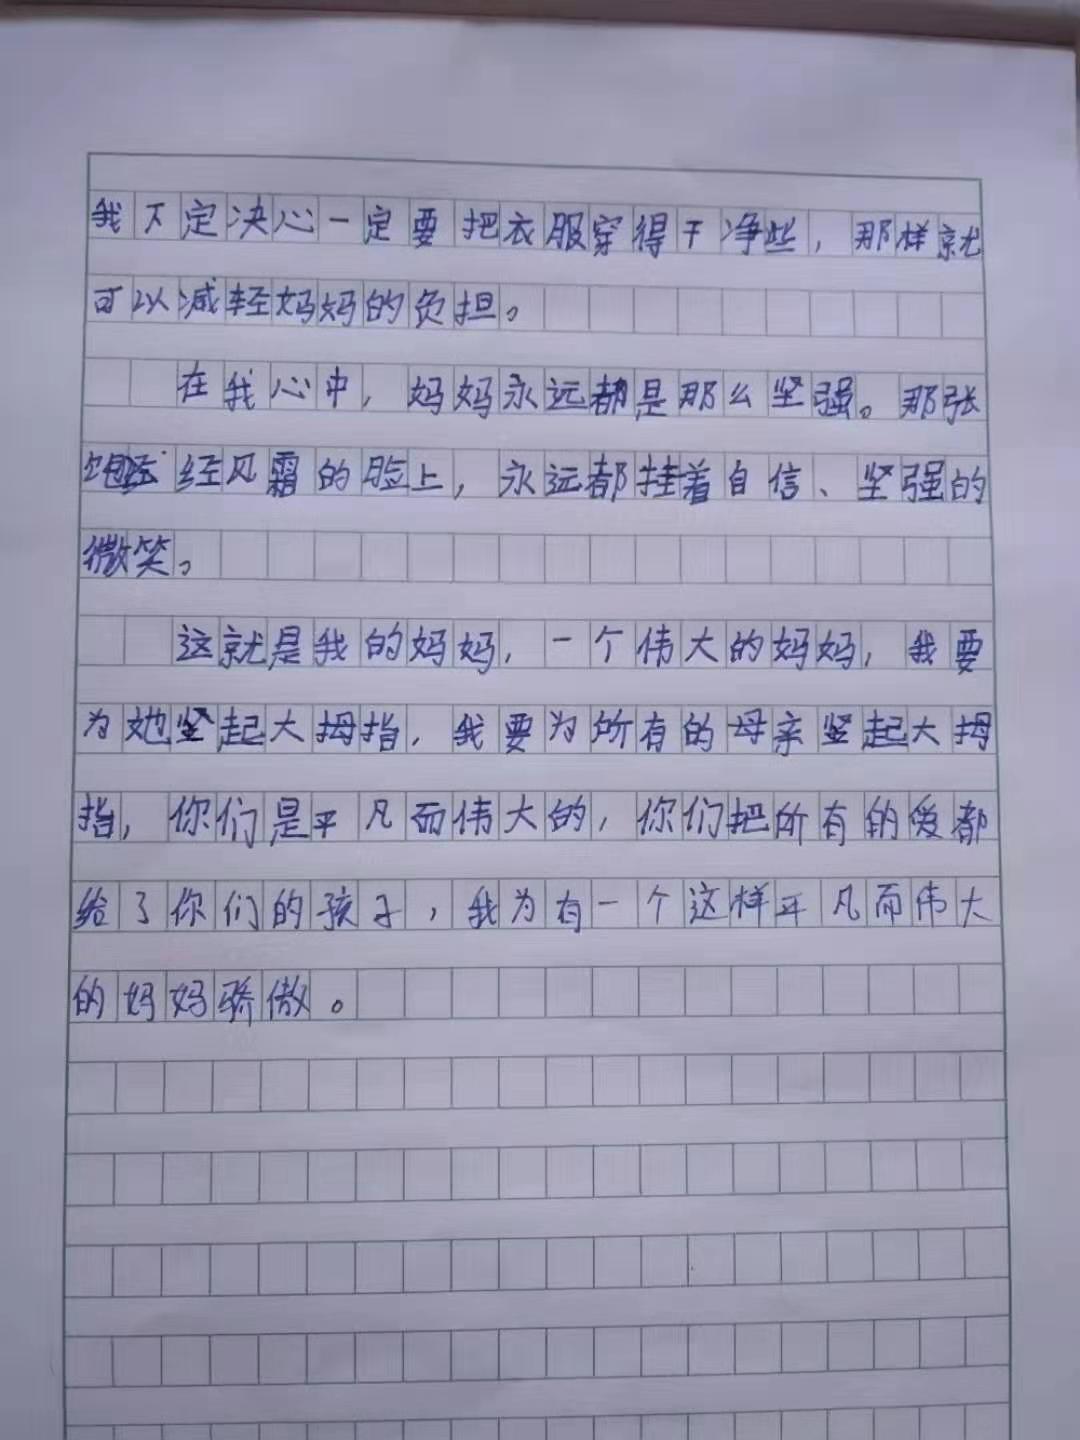 我下定决心一定要把衣服穿得干净些，那样就
可以减轻妈妈的负担。
在我心中，妈妈永远都是那么坚强。那张
经风霜的脸上，永远都挂着自信、坚强的
微笑。
这就是我的妈妈，一个伟大的妈妈，我要
为她竖起大拇指，我要为所有的母亲竖起大拇
指，你们是平凡而伟大的，你们把所有的爱都
给了你们的孩子，我为有一个这样平凡而伟大
的妈妈骄傲。